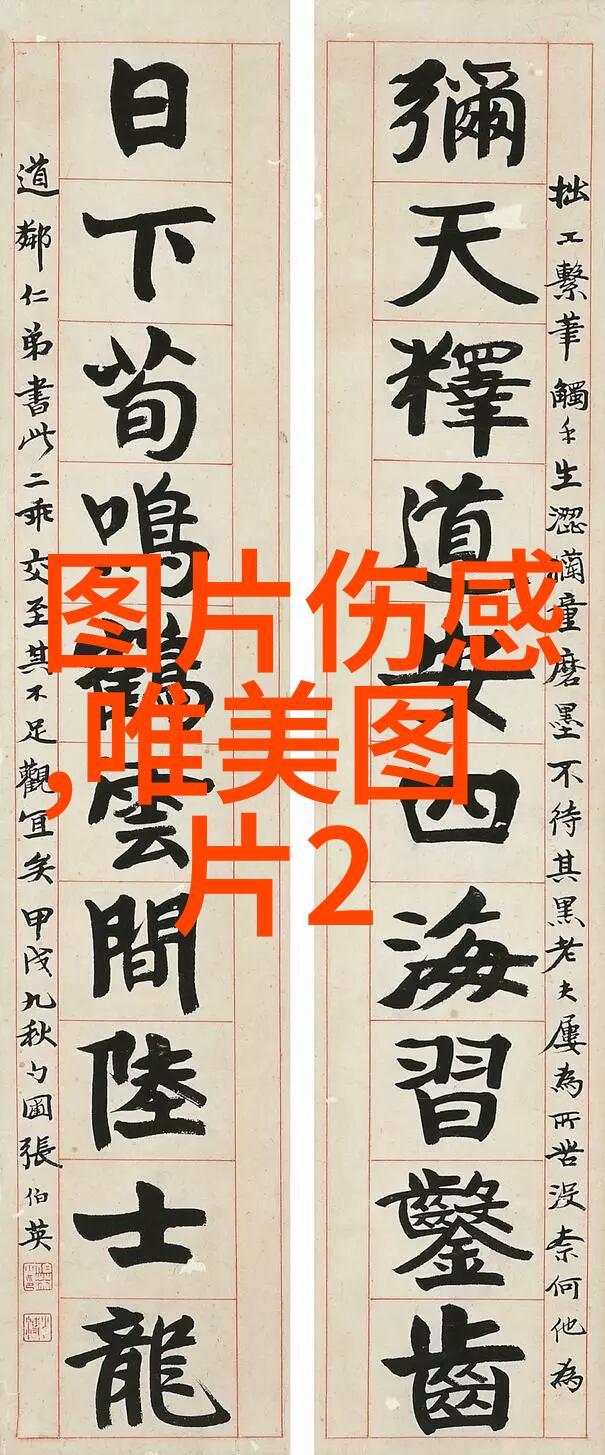 图片伤感
,唯美图
片2
拙工繫筆觸手生澀懶童磨墨不待其黑老夫屢為所苦沒奈何他為
彌天釋道安四海習鑿齒
日下荀鳴鶴雲間陸士龍
道鄰仁弟書此二乖交至其不足觀宜矣甲戌九秋勺圃張伯英